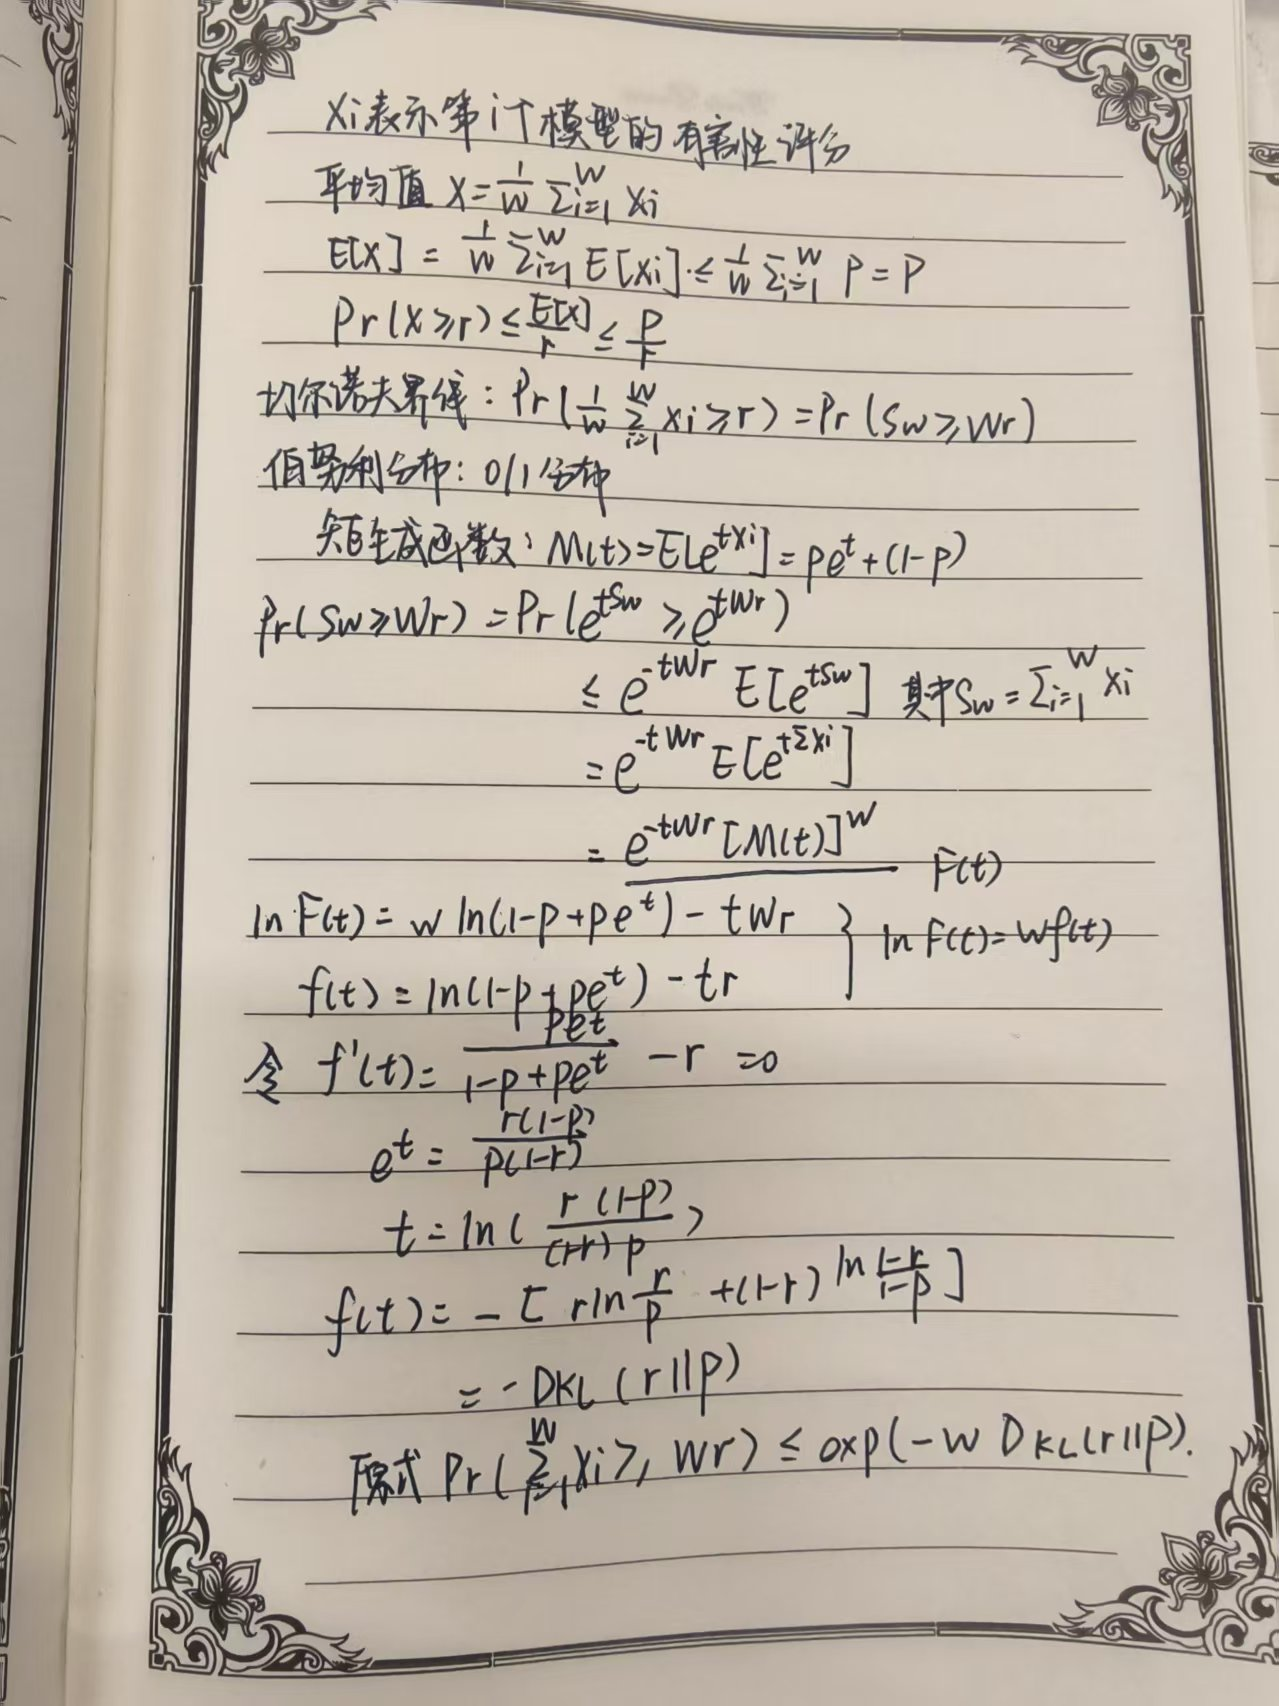 Xi表示第i个模型的有害性评分
平均值 X = 1/W Σ_{i=1}^{W} Xi
E[X] = 1/W Σ_{i=1}^{W} E[Xi] ≤ 1/W Σ_{i=1}^{W} P = P
Pr(X≥r) ≤ E[X]/r ≤ P/r
切尔诺夫界线: Pr(1/W Σ_{i=1}^{W} Xi≥r) = Pr(Sw≥Wr)
伯努利分布: 0/1分布
矩生成函数: M(t)=E[e^{tXi}] = pe^t+(1-p)
Pr(Sw≥Wr) = Pr(e^{tSw} ≥ e^{tWr})
≤ e^{-tWr} E[e^{tSw}] 其中Sw = Σ_{i=1}^{W} Xi
= e^{-tWr} E[e^{tΣXi}]
= e^{-tWr} [M(t)]^W F(t)
ln F(t) = W ln(1-p+pe^t) - tWr } ln F(t) = Wf(t)
f(t) = ln(1-p+pe^t) - tr
令 f'(t) = pe^t/(1-p+pe^t) - r = 0
e^t = r(1-p)/p(1-r)
t = ln( r(1-p)/(1-r)p )
f(t) = -[ r ln r/p + (1-r) ln 1-r/1-p ]
= - DKL (r||p)
原式 Pr( Σ_{i=1}^{W} Xi ≥ Wr) ≤ exp(-W DKL(r||p).